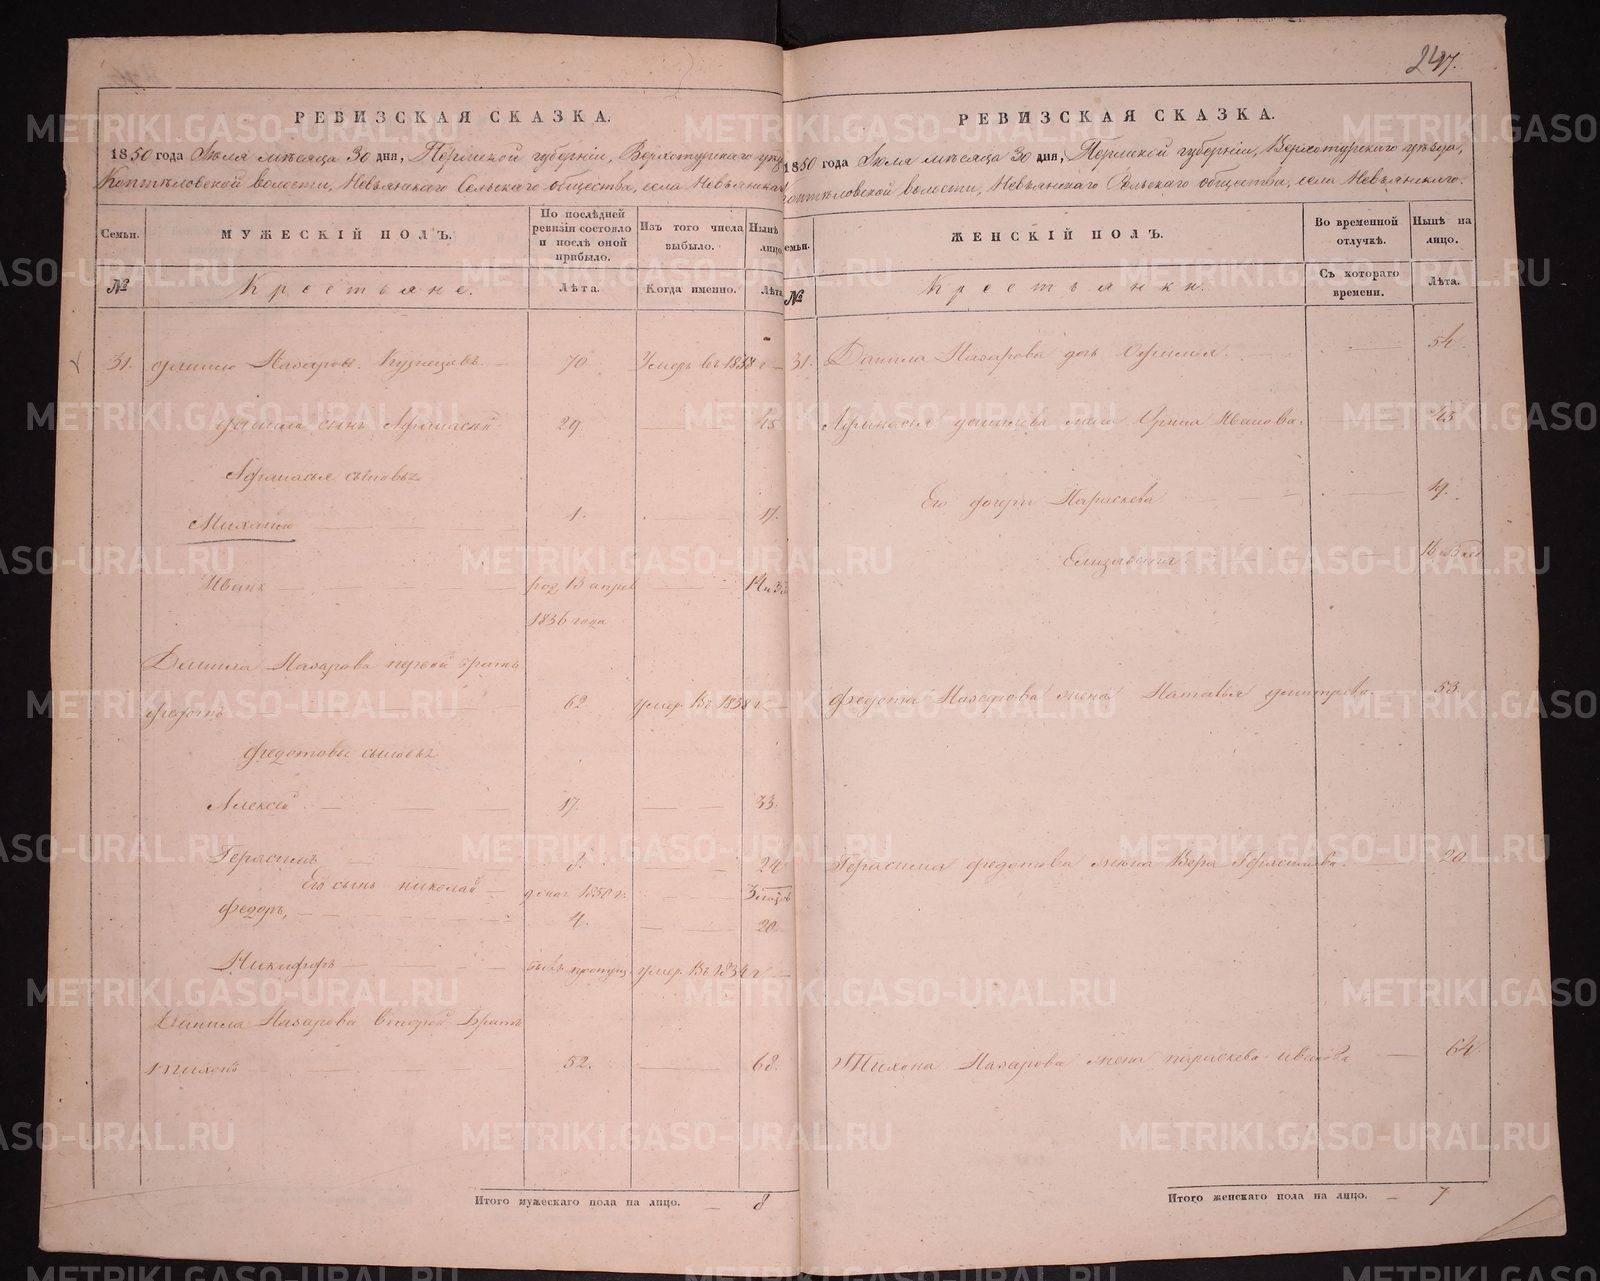 247.
РЕВИЗСКАЯ СКАЗКА.
1850 года Іюля мѣсяца 30 дня, Пермской губерніи, Верхотурскаго
Коптѣловской волости, Невьянскаго Сельскаго общества, села Невьянскаго
Семьи. МУЖЕСКІЙ ПОЛЪ. По послѣдней ревизіи состояло и послѣ оной прибыло. Изъ того числа выбыло. Нынѣ лицо.
№ Крестьяне. Лѣта. Когда именно. Лѣта
31. Назаровъ Кузнецовъ. 70 Умеръ въ 1838 г
Данила сынъ Афанасій 29
Афанасья сыновья
Михайло 1. 17.
Иванъ 13 апрел
1836 года
Данила Назарова первой братъ
Федотъ 62 умер. въ 1838 г
Федотовы сыновья
Алексей 17. 33.
Герасимъ 8. 24
Его сынъ Николай 1850 г.
Федоръ, 4. 20
Никифоръ былъ пропущ. умер. въ 1834 г
Данила Назарова второй братъ
Тихонъ 52. 68.
Итого мужескаго пола на лицо. 8
РЕВИЗСКАЯ СКАЗКА.
1850 года Іюля мѣсяца 30 дня, Пермской губерніи, Верхотурскаго уѣзда,
Коптѣловской волости, Невьянскаго Сельскаго общества, села Невьянскаго.
семьи. ЖЕНСКІЙ ПОЛЪ. Во временной отлучкѣ. Нынѣ на лицо.
№ Крестьянки. Съ котораго времени. Лѣта.
31. Данила Назарова дочь 54
Афанасья Данилова жена Ирина Иванова. 43
Его дочери Параскева 19.
Елизавета
Федота Назарова жена Наталья Дмитрева 53
Герасима Федотова жена Вера Герасимова. 20
Тихона Назарова жена Параскева Иванова 64
Итого женскаго пола на лицо. 7
METRIKI.GASO-URAL.RU